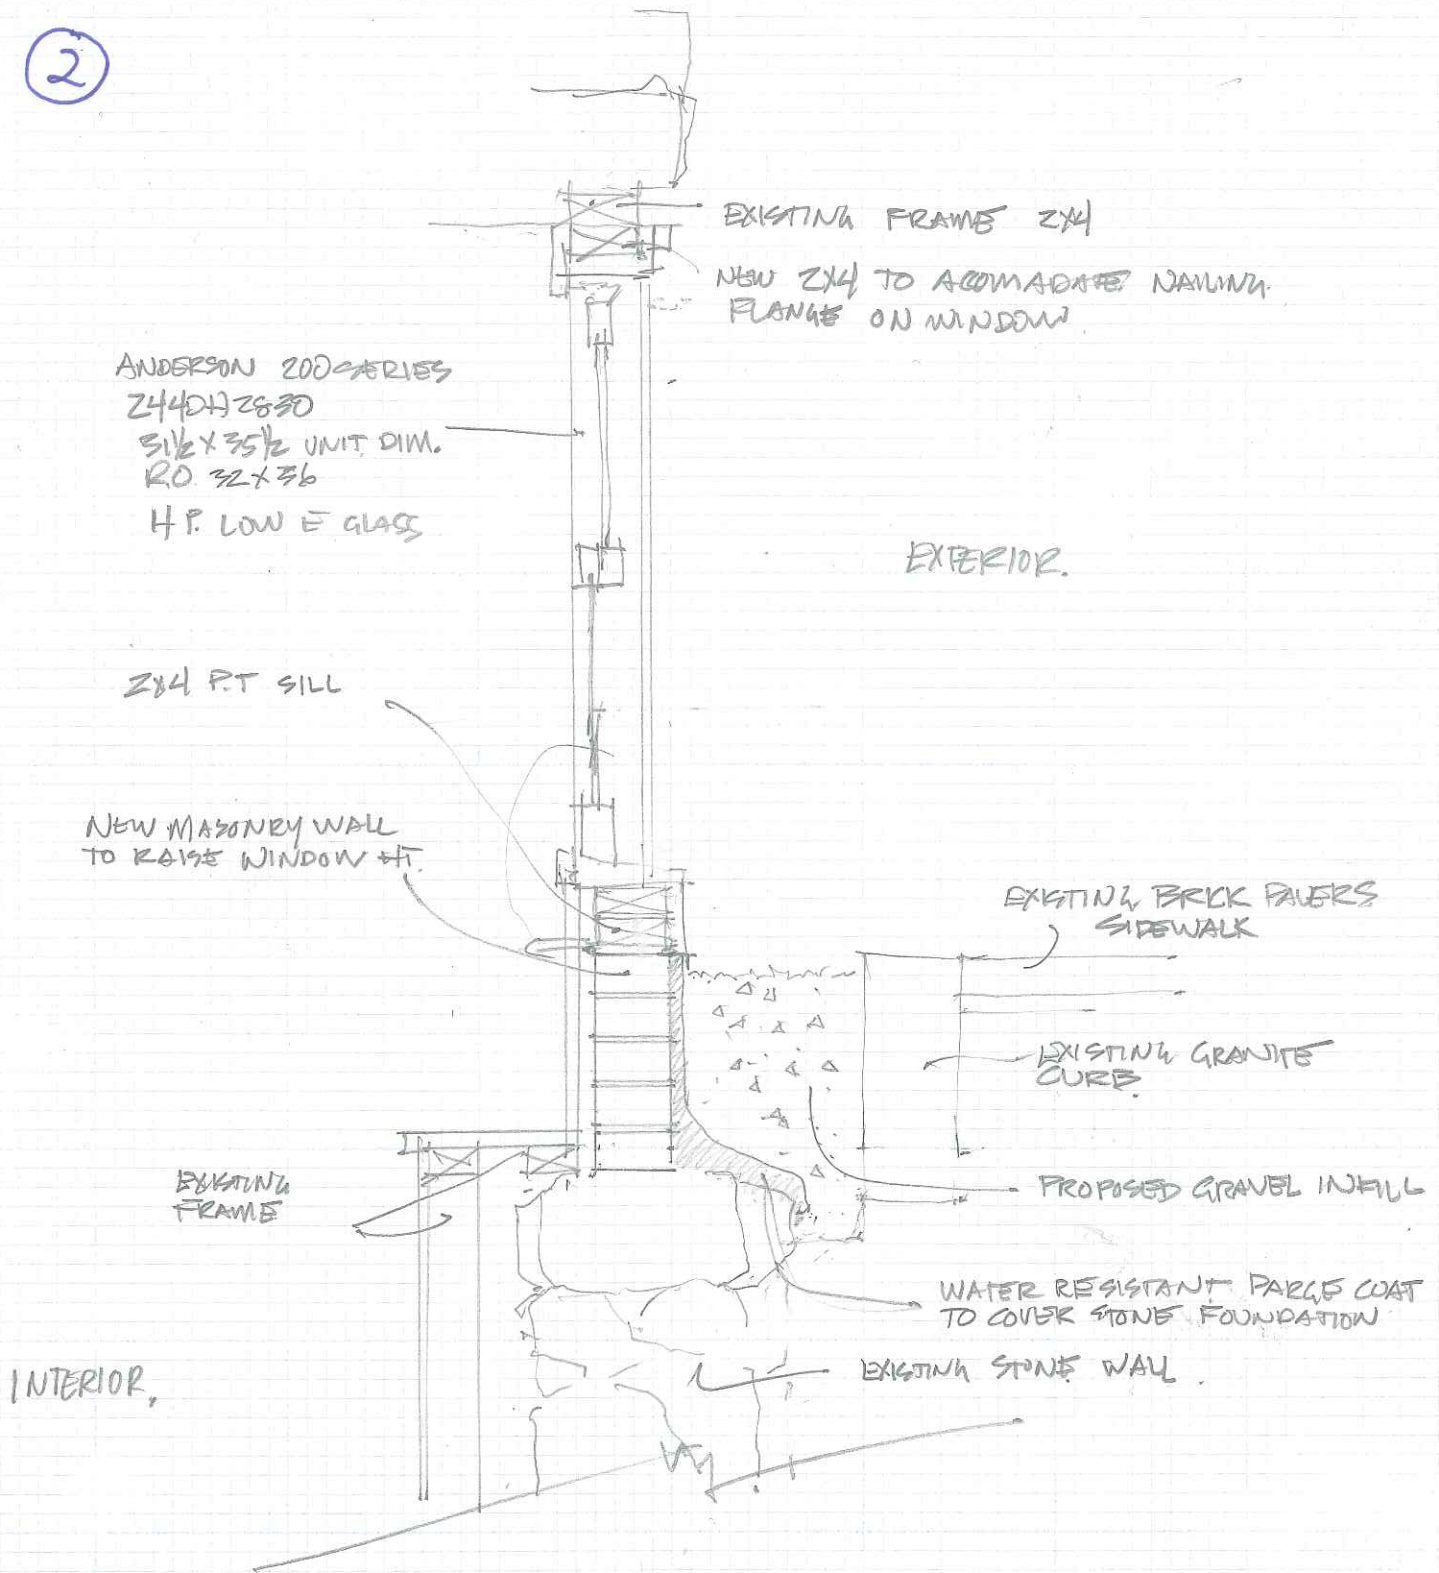 2
EXISTING FRAME 2X4
NEW 2X4 TO ACOMADATE NAILING
FLANGE ON WINDOW
ANDERSON 200 SERIES
244DH2830
31½ X 35½ UNIT DIM.
R.O. 32X36
H P. LOW E GLASS
EXTERIOR.
2X4 P.T SILL
NEW MASONRY WALL
TO RAISE WINDOW HT.
EXISTING BRICK PAVERS
SIDEWALK
EXISTING GRANITE
CURB.
EXISTING
FRAME
PROPOSED GRAVEL INFILL
WATER RESISTANT PARGE COAT
TO COVER STONE FOUNDATION
EXISTING STONE WALL.
INTERIOR,